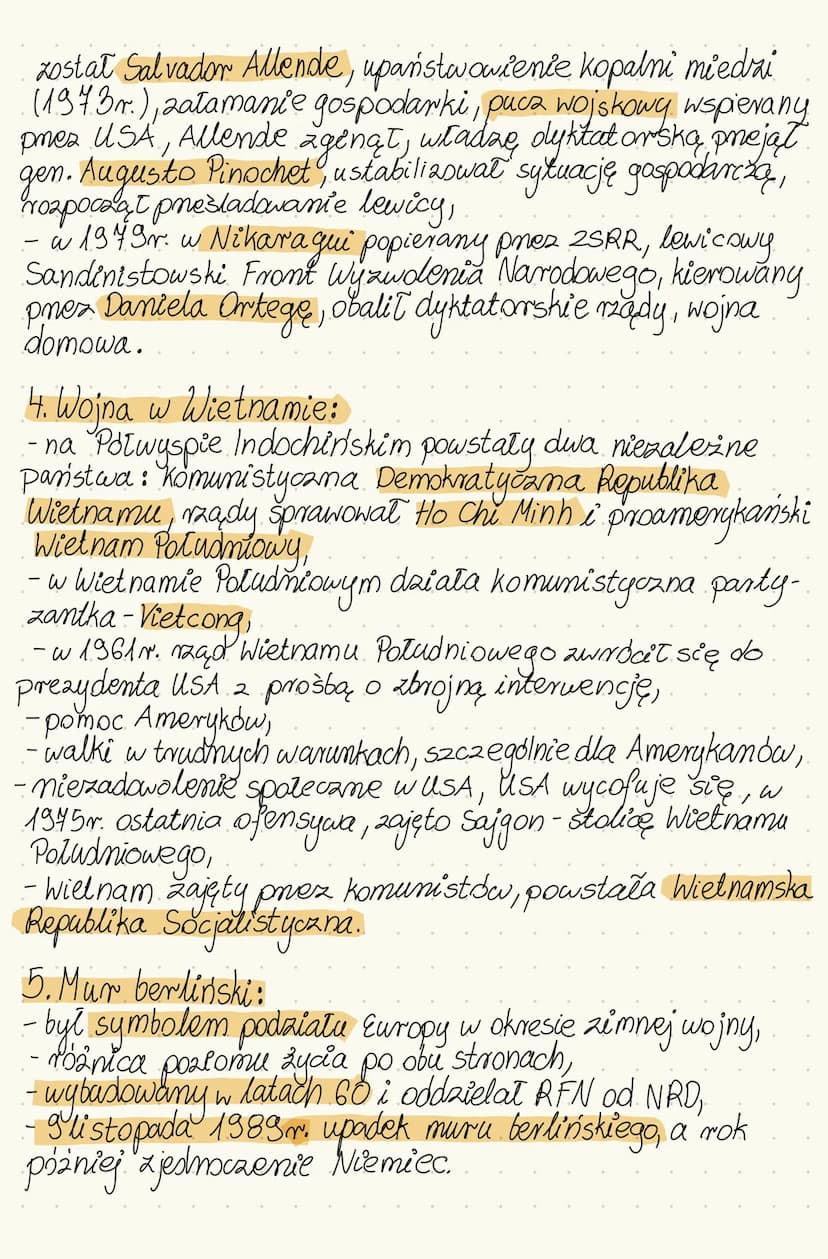 został Salvador Allende, upaństwowienie kopalni miedzi
(1973r.), załamanie gospodarki, pucz wojskowy wspierany
przez USA, Allende zginął, władzę dyktatorską przejął
gen. Augusto Pinochet, ustabilizował sytuację gospodarczą,
rozpoczął prześladowanie lewicy,
- w 1979r. w Nikaragui popierany przez ZSRR, lewicowy
Sandinistowski Front Wyzwolenia Narodowego, kierowany
przez Daniela Ortegę, obalił dyktatorskie rządy, wojna
domowa.
4. Wojna w Wietnamie:
- na Półwyspie Indochińskim powstały dwa niezależne
państwa: komunistyczna Demokratyczna Republika
Wietnamu, rządy sprawował Ho Chi Minh i proamerykański
Wietnam Południowy,
- w Wietnamie Południowym działa komunistyczna party-
zantka - Vietcong,
- w 1961r. rząd Wietnamu Południowego zwrócił się do
prezydenta USA z prośbą o zbrojną interwencję,
- pomoc Ameryków,
- walki w trudnych warunkach, szczególnie dla Amerykanów,
- niezadowolenie społeczne w USA, USA wycofuje się, w
1975r. ostatnia ofensywa, zajęto Sajgon - stolicę Wietnamu
Południowego,
- Wietnam zajęty przez komunistów, powstała Wietnamska
Republika Socjalistyczna.
5. Mur berliński:
- był symbolem podziału Europy w okresie zimnej wojny,
- różnica poziomu życia po obu stronach,
- wybudowany w latach 60 i oddzielał RFN od NRD,
- 9 listopada 1989r. upadek muru berlińskiego, a rok
później zjednoczenie Niemiec.